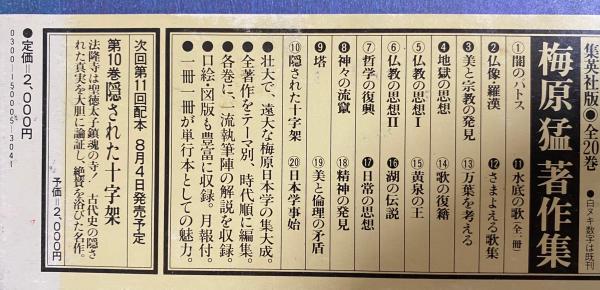 集英社版●全20巻
梅原猛著作集
●白ヌキ数字は既刊
①闇のパトス
❷仏像羅漢
❸美と宗教の発見
❹地獄の思想
⑤仏教の思想Ⅰ
⑥仏教の思想Ⅱ
⑦哲学の復興
❽神々の流竄
❾塔
⑩隠された十字架
⓫水底の歌(全一冊)
⓬さまよえる歌集
⑬万葉を考える
⑭歌の復籍
⑮黄泉の王
⓰湖の伝説
⓱日常の思想
⑱精神の発見
⑲美と倫理の矛盾
⑳日本学事始
●壮大で、遠大な梅原日本学の集大成。
●全著作をテーマ別、時代順に編集。
●各巻に、一流執筆陣の解説を収録。
●口絵・図版も豊富に収録。月報付。
●一冊一冊が単行本としての魅力。
次回第11回配本 8月4日発売予定
第10巻隠された十字架
法隆寺は聖徳太子鎮魂の寺! 古代史の隠さ
れた真実を大胆に論証し、絶賛を浴びた名作。
予価=2,000円
●定価=2,000円
0300―150005―3041